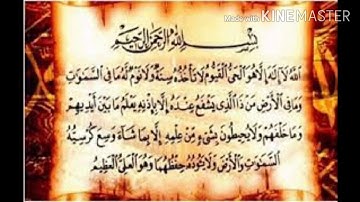 Made with KINEMASTER
بِسْمِ اللهِ الرَّحْمٰنِ الرَّحِيْمِ
اَللهُ لَآ اِلٰهَ اِلَّا هُوَ الْحَيُّ الْقَيُّوْمُ لَا تَأْخُذُهُ سِنَةٌ وَلَا نَوْمٌ لَهُ مَا فِي السَّمٰوَاتِ
وَمَا فِي الْاَرْضِ مَنْ ذَا الَّذِيْ يَشْفَعُ عِنْدَهُ اِلَّا بِاِذْنِهِ يَعْلَمُ مَا بَيْنَ اَيْدِيْهِمْ
وَمَا خَلْفَهُمْ وَلَا يُحِيْطُوْنَ بِشَيْءٍ مِنْ عِلْمِهِ اِلَّا بِمَا شَآءَ وَسِعَ كُرْسِيُّهُ
السَّمٰوَاتِ وَالْاَرْضَ وَلَا يَؤُدُهُ حِفْظُهُمَا وَهُوَ الْعَلِيُّ الْعَظِيْمُ